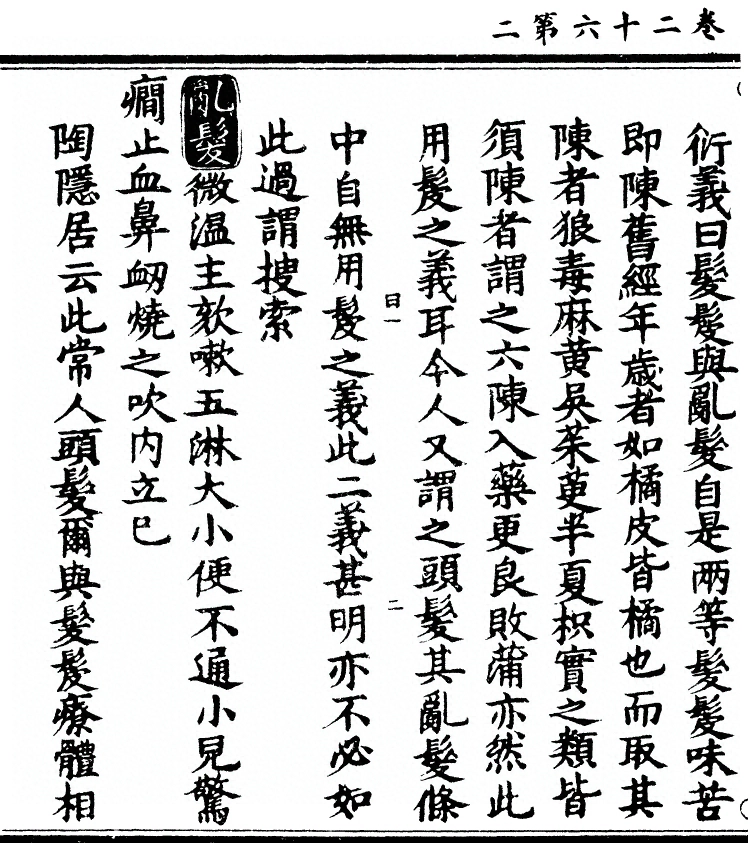 卷二十六第二
衍義曰髮髲與亂髮自是兩等髮髲味苦
即陳舊經年歲者如橘皮皆橘也而取其
陳者狼毒麻黃吳茱萸半夏枳實之類皆
須陳者謂之六陳入藥更良敗蒲亦然此
用髲之義耳今人又謂之頭髮其亂髮條
中自無用髲之義此二義甚明亦不必如
此過謂搜索
亂髮微溫主欬嗽五淋大小便不通小兒驚
癇止血鼻衂燒之吹內立已
陶隱居云此常人頭髮爾與髮髲療體相
日一
二